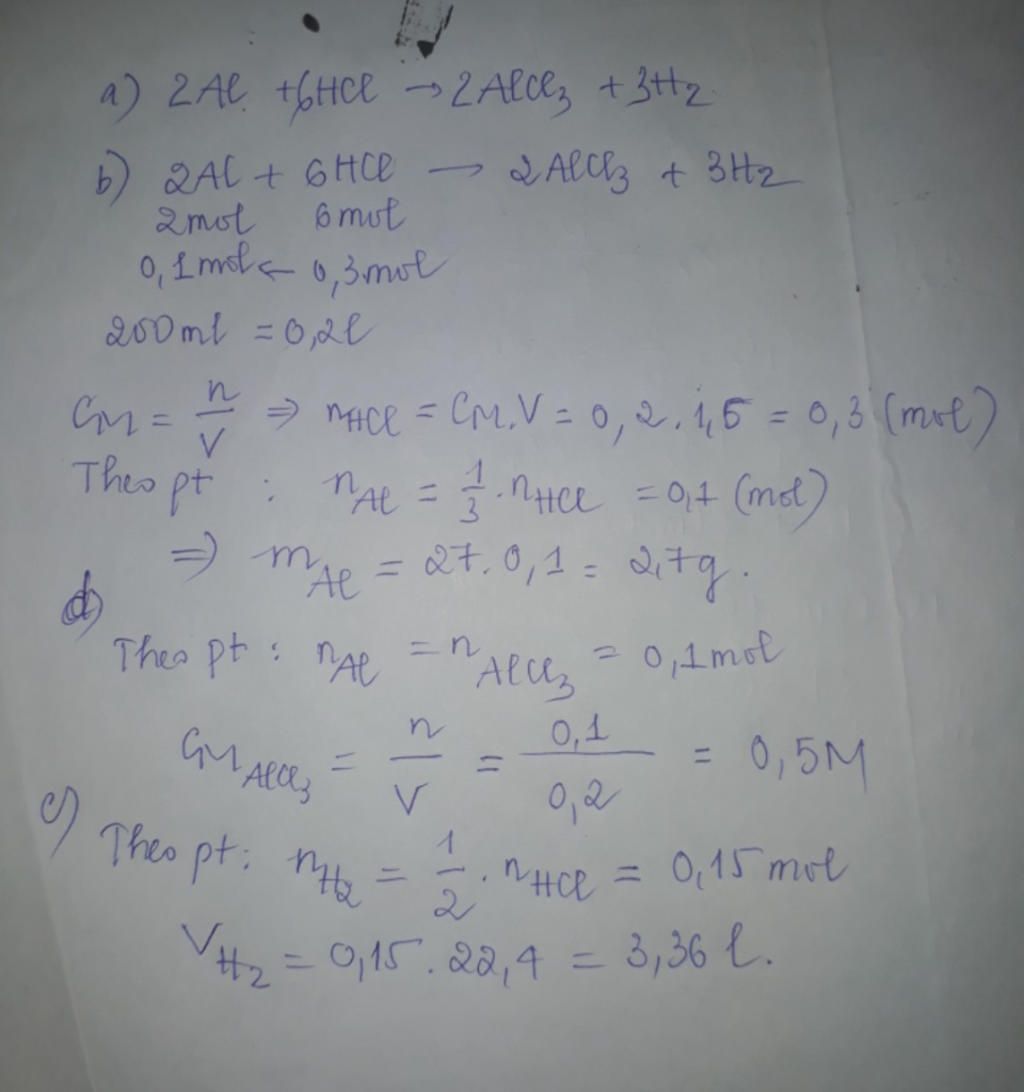 a) 2Al + 6HCl → 2AlCl₃ + 3H₂
b) 2Al + 6HCl → 2AlCl₃ + 3H₂
2mol 6mol
0,1mol ← 0,3mol
200ml = 0,2l
CM = n/V ⇒ nHCl = CM.V = 0,2.1,5 = 0,3 (mol)
Theo pt : nAl = 1/3 . nHCl = 0,1 (mol)
⇒ mAl = 27.0,1 = 2,7g.
d)
Theo pt : nAl = nAlCl₃ = 0,1mol
CM AlCl₃ = n/V = 0,1/0,2 = 0,5M
c) Theo pt: nH₂ = 1/2 . nHCl = 0,15 mol
VH₂ = 0,15.22,4 = 3,36 l.